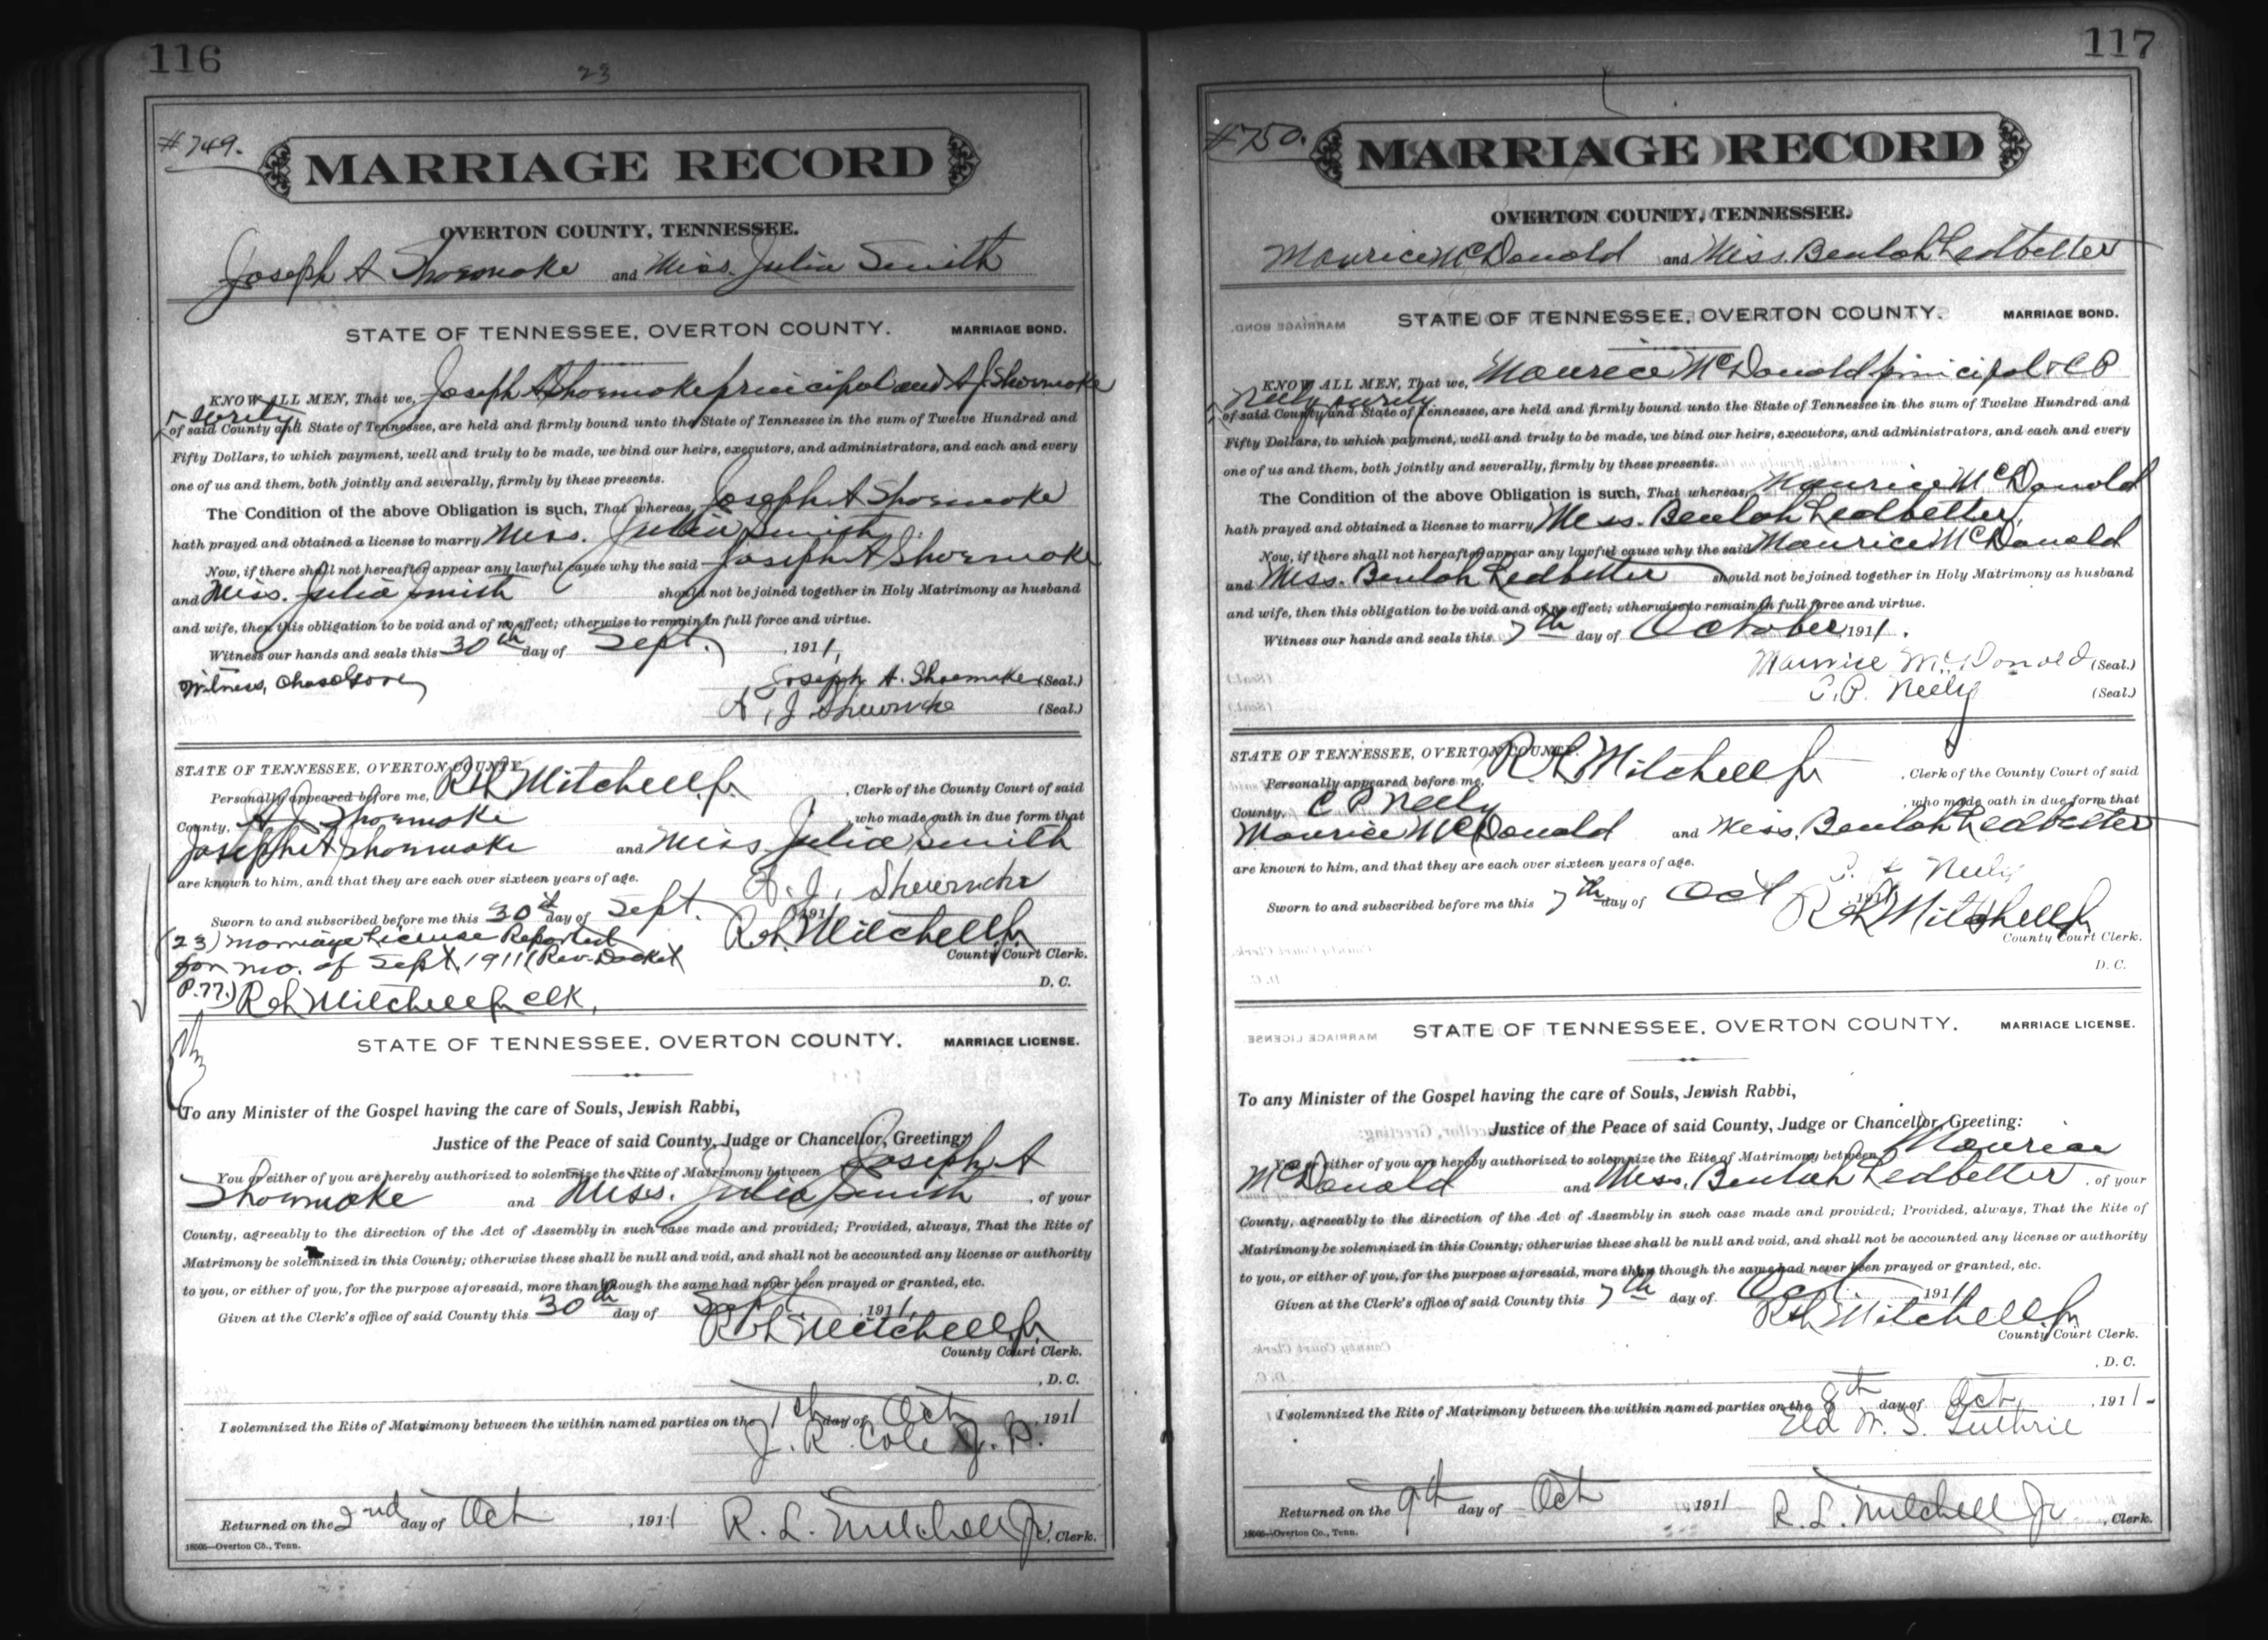 116
23
#749.
MARRIAGE RECORD
OVERTON COUNTY, TENNESSEE.
Joseph A Shoemake and Miss. Julia Smith
STATE OF TENNESSEE, OVERTON COUNTY. MARRIAGE BOND.
KNOW ALL MEN, That we, Joseph A Shoemake principal and A J. Shoemake
surety
of said County and State of Tennessee, are held and firmly bound unto the State of Tennessee in the sum of Twelve Hundred and
Fifty Dollars, to which payment, well and truly to be made, we bind our heirs, executors, and administrators, and each and every
one of us and them, both jointly and severally, firmly by these presents.
The Condition of the above Obligation is such, That whereas, Joseph A Shoemake
hath prayed and obtained a license to marry Miss. Julia Smith
Now, if there shall not hereafter appear any lawful cause why the said Joseph A Shoemake
and Miss. Julia Smith should not be joined together in Holy Matrimony as husband
and wife, then this obligation to be void and of no effect; otherwise to remain in full force and virtue.
Witness our hands and seals this 30th day of Sept. , 1911,
Witness, Chas Gore Joseph A. Shoemake (Seal.)
A. J (Seal.)
STATE OF TENNESSEE, OVERTON COUNTY.
Personally appeared before me, R L Mitchell Jr , Clerk of the County Court of said
County, A J Shoemake , who made oath in due form that
Joseph A Shoemake and Miss. Julia Smith
are known to him, and that they are each over sixteen years of age.
A. J.
Sworn to and subscribed before me this 30th day of Sept. 191
R L Mitchell Jr
County Court Clerk.
D. C.
(23) Marriage License Reported
for mo. of Sept. 1911 (Rev. Docket
P. 77.) R L Mitchell Jr clk.
STATE OF TENNESSEE, OVERTON COUNTY. MARRIAGE LICENSE.
To any Minister of the Gospel having the care of Souls, Jewish Rabbi,
Justice of the Peace of said County, Judge or Chancellor, Greeting:
You or either of you are hereby authorized to solemnize the Rite of Matrimony between Joseph A
Shoemake and Miss. Julia Smith , of your
County, agreeably to the direction of the Act of Assembly in such case made and provided; Provided, always, That the Rite of
Matrimony be solemnized in this County; otherwise these shall be null and void, and shall not be accounted any license or authority
to you, or either of you, for the purpose aforesaid, more than though the same had never been prayed or granted, etc.
Given at the Clerk's office of said County this 30th day of Sept , 1911,
R L Mitchell Jr
County Court Clerk.
, D. C.
I solemnized the Rite of Matrimony between the within named parties on the 1st day of Oct , 1911
J. R. Cole J. P.
Returned on the 2nd day of Oct , 1911 R. L. Mitchell Jr , Clerk.
18505—Overton Co., Tenn.
117
#750.
MARRIAGE RECORD
OVERTON COUNTY, TENNESSEE.
Maurice McDonald and Miss. Beulah Ledbetter
STATE OF TENNESSEE, OVERTON COUNTY. MARRIAGE BOND.
KNOW ALL MEN, That we, Maurice McDonald principal & C P
Neely surety
of said County and State of Tennessee, are held and firmly bound unto the State of Tennessee in the sum of Twelve Hundred and
Fifty Dollars, to which payment, well and truly to be made, we bind our heirs, executors, and administrators, and each and every
one of us and them, both jointly and severally, firmly by these presents.
The Condition of the above Obligation is such, That whereas, Maurice McDonald
hath prayed and obtained a license to marry Miss. Beulah Ledbetter
Now, if there shall not hereafter appear any lawful cause why the said Maurice McDonald
and Miss. Beulah Ledbetter should not be joined together in Holy Matrimony as husband
and wife, then this obligation to be void and of no effect; otherwise to remain in full force and virtue.
Witness our hands and seals this 7th day of October, 1911.
Maurice McDonald (Seal.)
C. P. Neely (Seal.)
STATE OF TENNESSEE, OVERTON COUNTY.
Personally appeared before me, R L Mitchell Jr , Clerk of the County Court of said
County, C P Neely , who made oath in due form that
Maurice McDonald and Miss. Beulah Ledbetter
are known to him, and that they are each over sixteen years of age.
Neely
Sworn to and subscribed before me this 7th day of Oct 1911
R L Mitchell Jr
County Court Clerk.
D. C.
STATE OF TENNESSEE, OVERTON COUNTY. MARRIAGE LICENSE.
To any Minister of the Gospel having the care of Souls, Jewish Rabbi,
Justice of the Peace of said County, Judge or Chancellor, Greeting:
You or either of you are hereby authorized to solemnize the Rite of Matrimony between Maurice
McDonald and Miss. Beulah Ledbetter , of your
County, agreeably to the direction of the Act of Assembly in such case made and provided; Provided, always, That the Rite of
Matrimony be solemnized in this County; otherwise these shall be null and void, and shall not be accounted any license or authority
to you, or either of you, for the purpose aforesaid, more than though the same had never been prayed or granted, etc.
Given at the Clerk's office of said County this 7th day of Oct. 1911
R L Mitchell Jr
County Court Clerk.
, D. C.
I solemnized the Rite of Matrimony between the within named parties on the 8th day of Oct , 1911-
Eld W. S. Guthrie
Returned on the 9th day of Oct , 1911 R. L. Mitchell Jr , Clerk.
18505—Overton Co., Tenn.